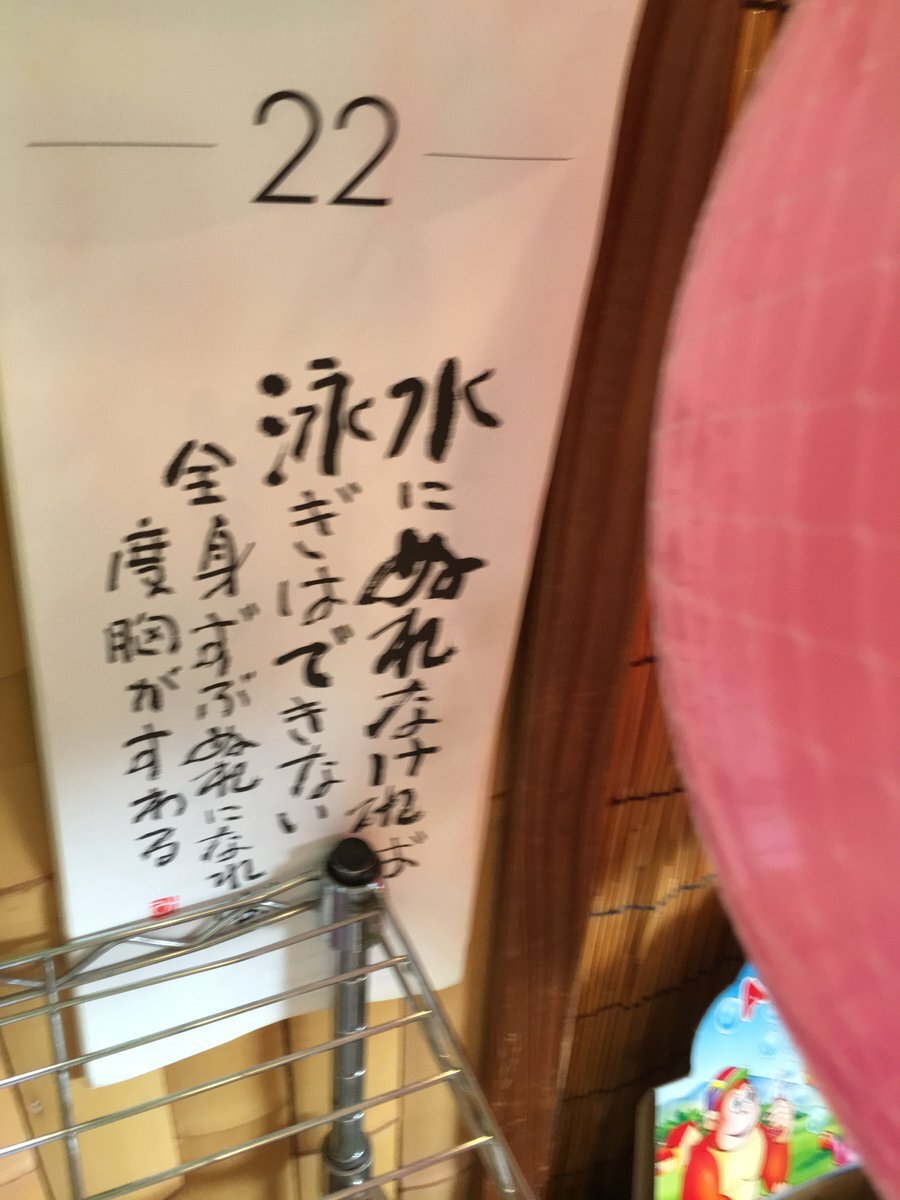 22
水にぬれなければ
泳ぎはできない
全身ずぶぬれになれば
度胸がすわる